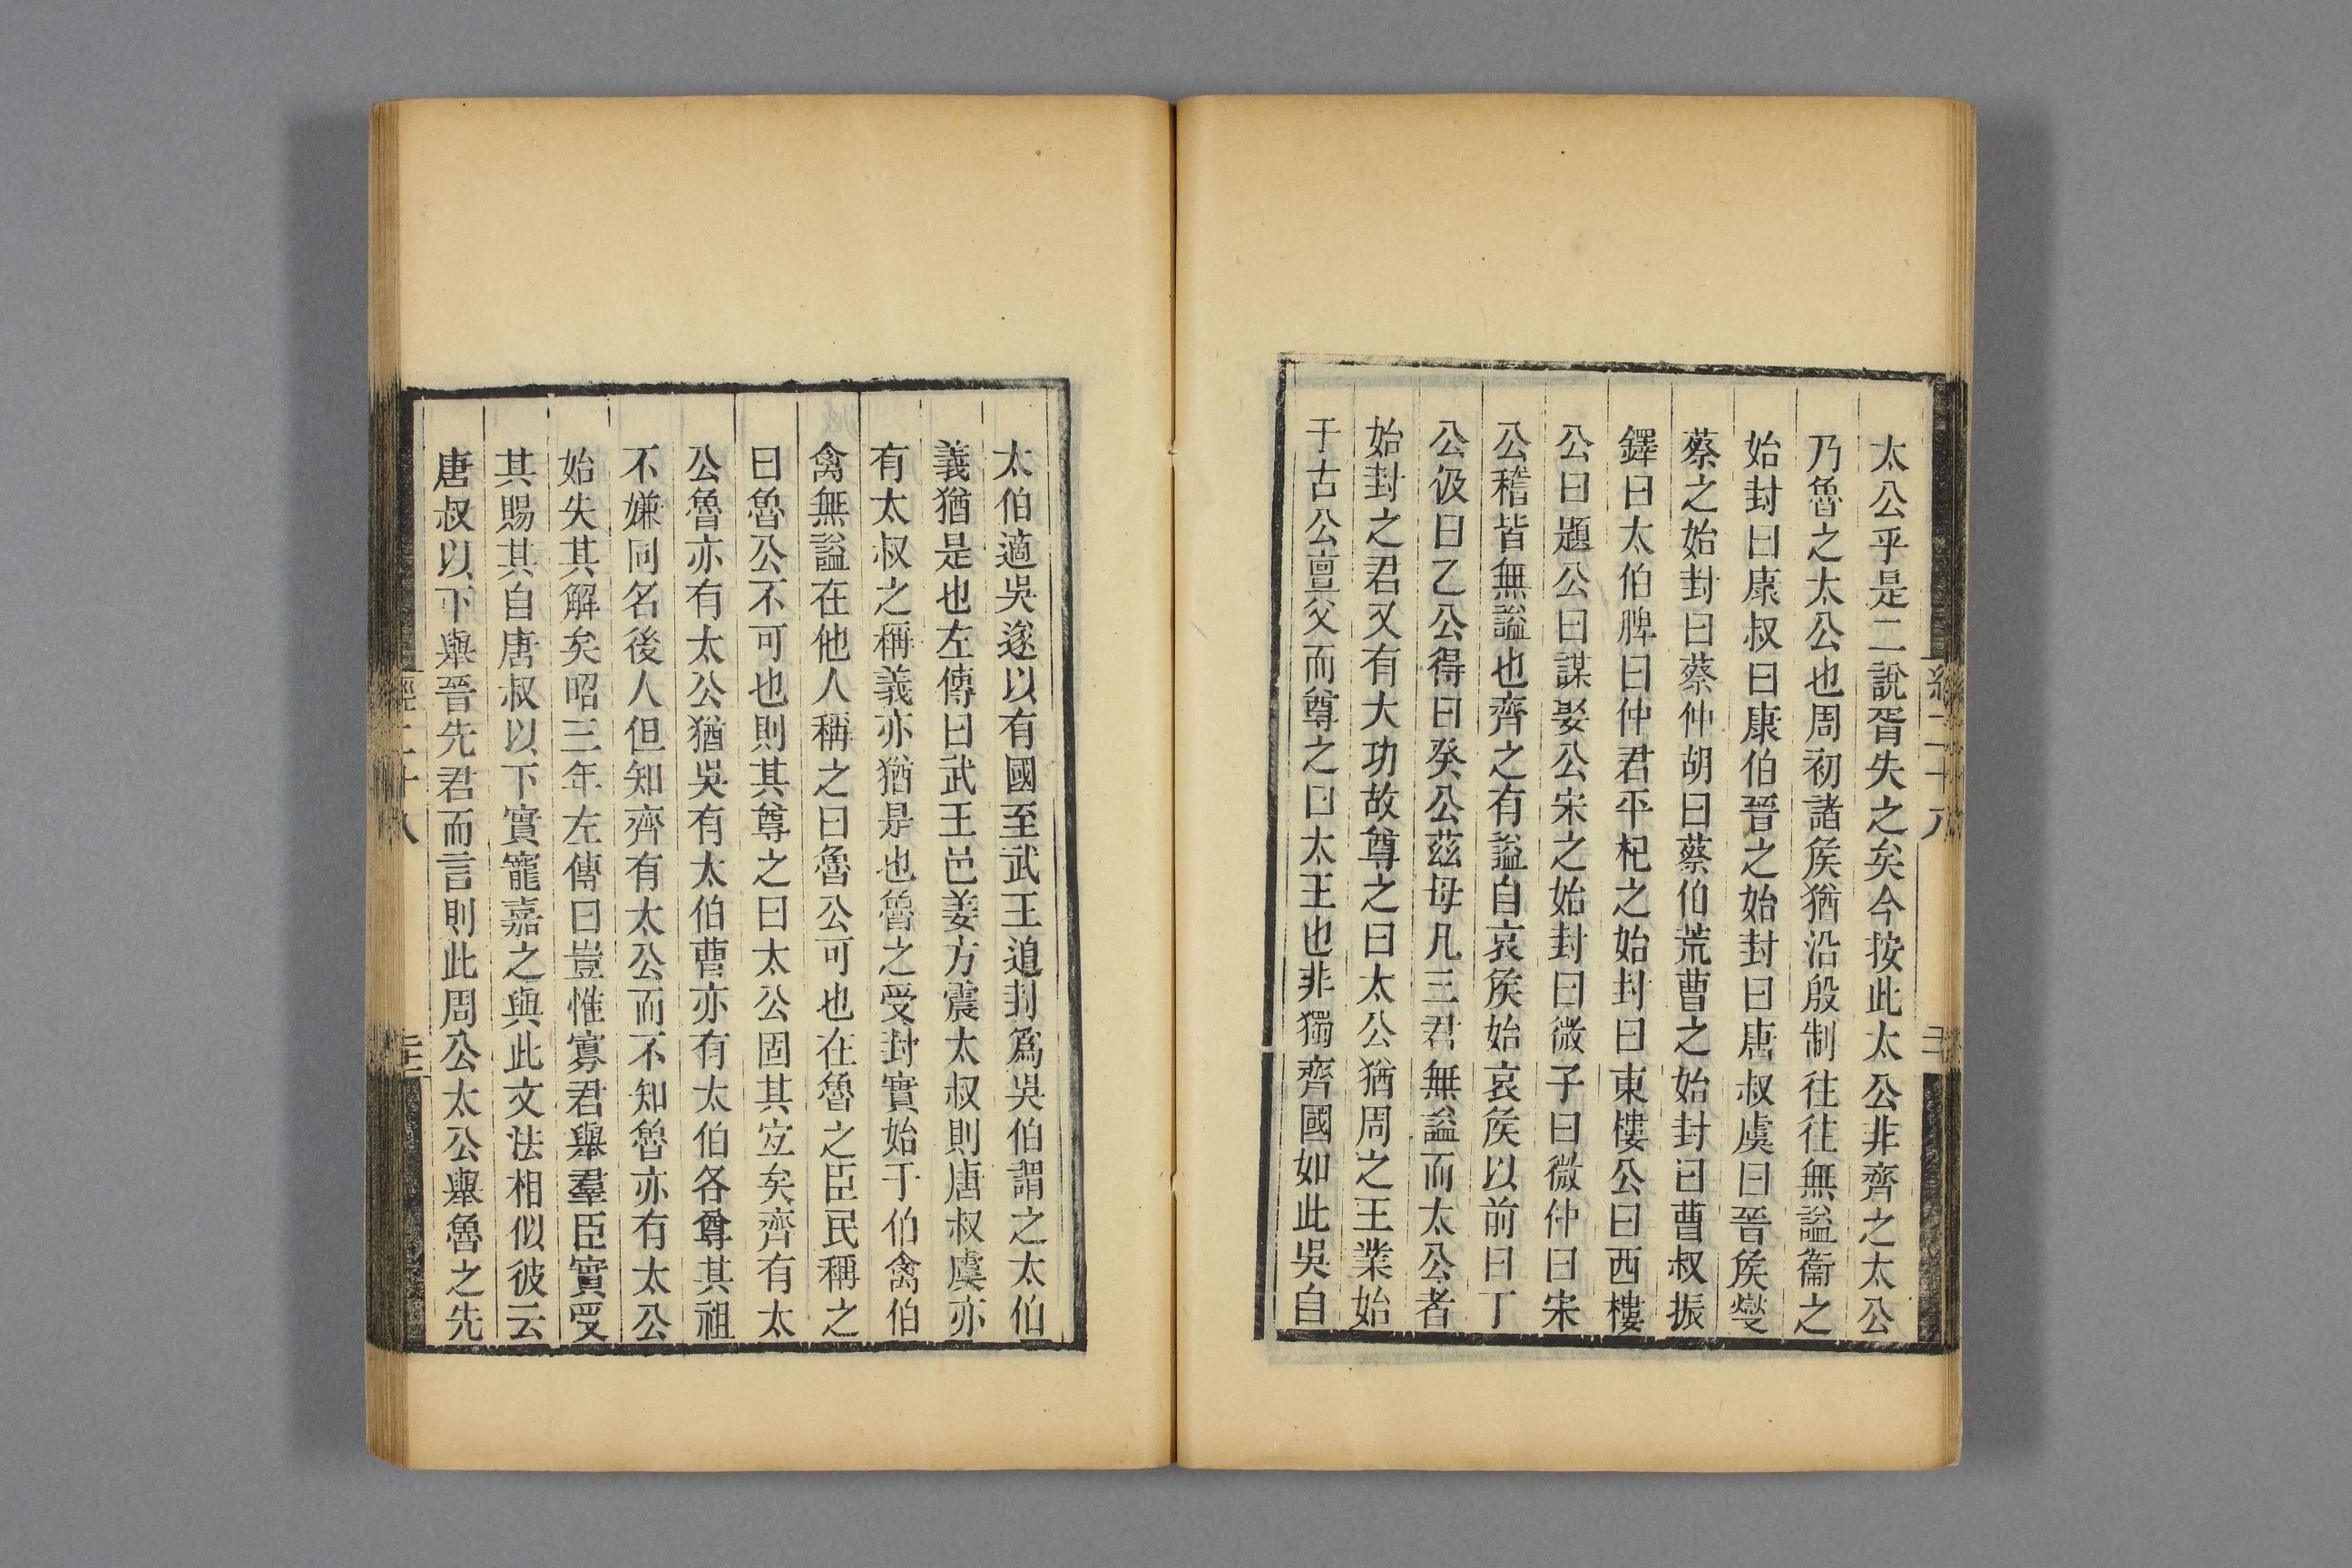 太公乎是二說胥失之矣今按此太公非齊之太公
乃魯之太公也周初諸矦猶沿殷制往往無謚衞之
始封曰康叔曰康伯晉之始封曰唐叔虞曰晉矦燮
蔡之始封曰蔡仲胡曰蔡伯荒曹之始封曰曹叔振
鐸曰太伯脾曰仲君平杞之始封曰東樓公曰西樓
公曰題公曰謀娶公宋之始封曰微子曰微仲曰宋
公稽皆無謚也齊之有謚自哀矦始哀矦以前曰丁
公伋曰乙公得曰癸公茲母凡三君無謚而太公者
始封之君又有大功故尊之曰太公猶周之王業始
于古公亶父而尊之曰太王也非獨齊國如此吳自
太伯適吳遂以有國至武王追封爲吳伯謂之太伯
義猶是也左傳曰武王邑姜方震太叔則唐叔虞亦
有太叔之稱義亦猶是也魯之受封實始于伯禽伯
禽無謚在他人稱之曰魯公可也在魯之臣民稱之
曰魯公不可也則其尊之曰太公固其宜矣齊有太
公魯亦有太公猶吳有太伯曹亦有太伯各尊其祖
不嫌同名後人但知齊有太公而不知魯亦有太公
始失其解矣昭三年左傳曰豈惟寡君舉羣臣實受
其賜其自唐叔以下實寵嘉之與此文法相似彼云
唐叔以下舉晉先君而言則此周公太公舉魯之先
經二十八